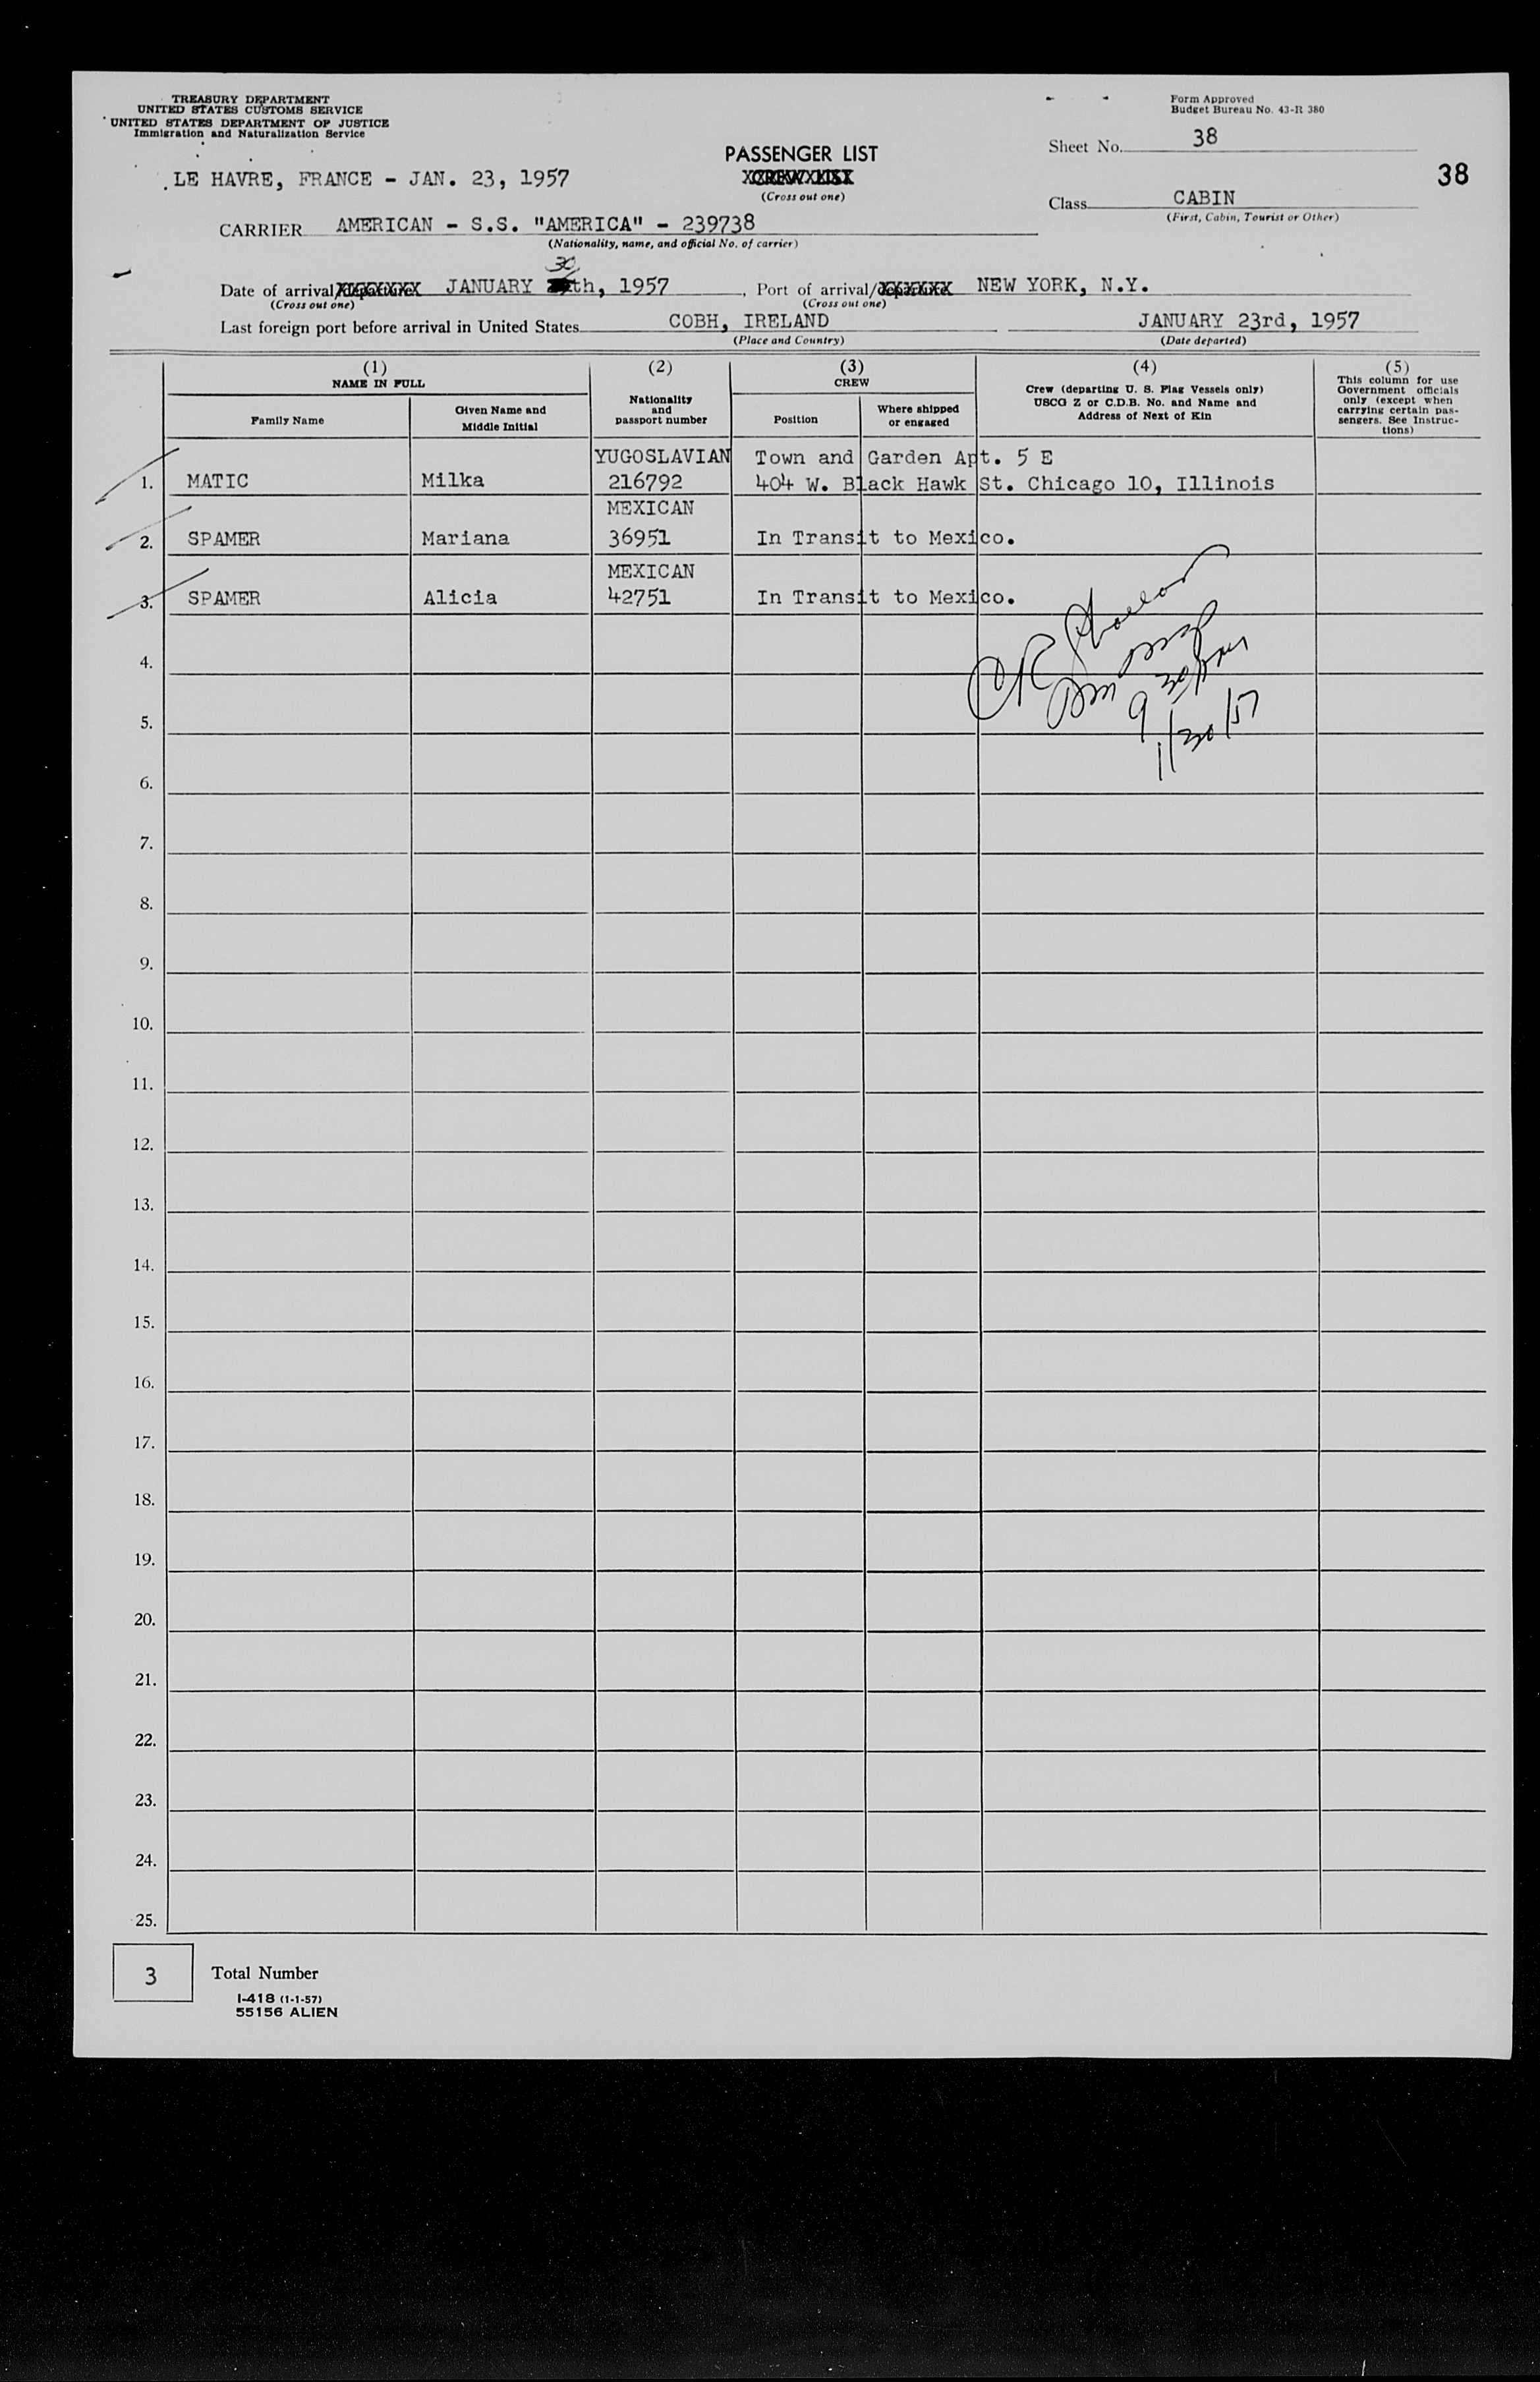 TREASURY DEPARTMENT
UNITED STATES CUSTOMS SERVICE
UNITED STATES DEPARTMENT OF JUSTICE
Immigration and Naturalization Service
Form Approved
Budget Bureau No. 43-R 380
PASSENGER LIST
CREW LIST
(Cross out one)
Sheet No. 38
38
LE HAVRE, FRANCE - JAN. 23, 1957
Class CABIN
(First, Cabin, Tourist or Other)
CARRIER AMERICAN - S.S. "AMERICA" - 239738
(Nationality, name, and official No. of carrier)
30
Date of arrival/departure JANUARY th, 1957, Port of arrival/departure NEW YORK, N.Y.
(Cross out one) (Cross out one)
Last foreign port before arrival in United States COBH, IRELAND JANUARY 23rd, 1957
(Place and Country) (Date departed)
(1) (2) (3) (4) (5)
NAME IN FULL
Family Name
Given Name and
Middle Initial
Nationality
and
passport number
CREW
Position
Where shipped
or engaged
Crew (departing U. S. Flag Vessels only)
USCG Z or C.D.B. No. and Name and
Address of Next of Kin
This column for use
Government officials
only (except when
carrying certain pas-
sengers. See Instruc-
tions)
YUGOSLAVIAN Town and Garden Apt. 5 E
1. MATIC Milka 216792 404 W. Black Hawk St. Chicago 10, Illinois
MEXICAN
2. SPAMER Mariana 36951 In Transit to Mexico.
MEXICAN
3. SPAMER Alicia 42751 In Transit to Mexico.
4.
5.
1/30/57
6.
7.
8.
9.
10.
11.
12.
13.
14.
15.
16.
17.
18.
19.
20.
21.
22.
23.
24.
25.
3 Total Number
I-418 (1-1-57)
55156 ALIEN